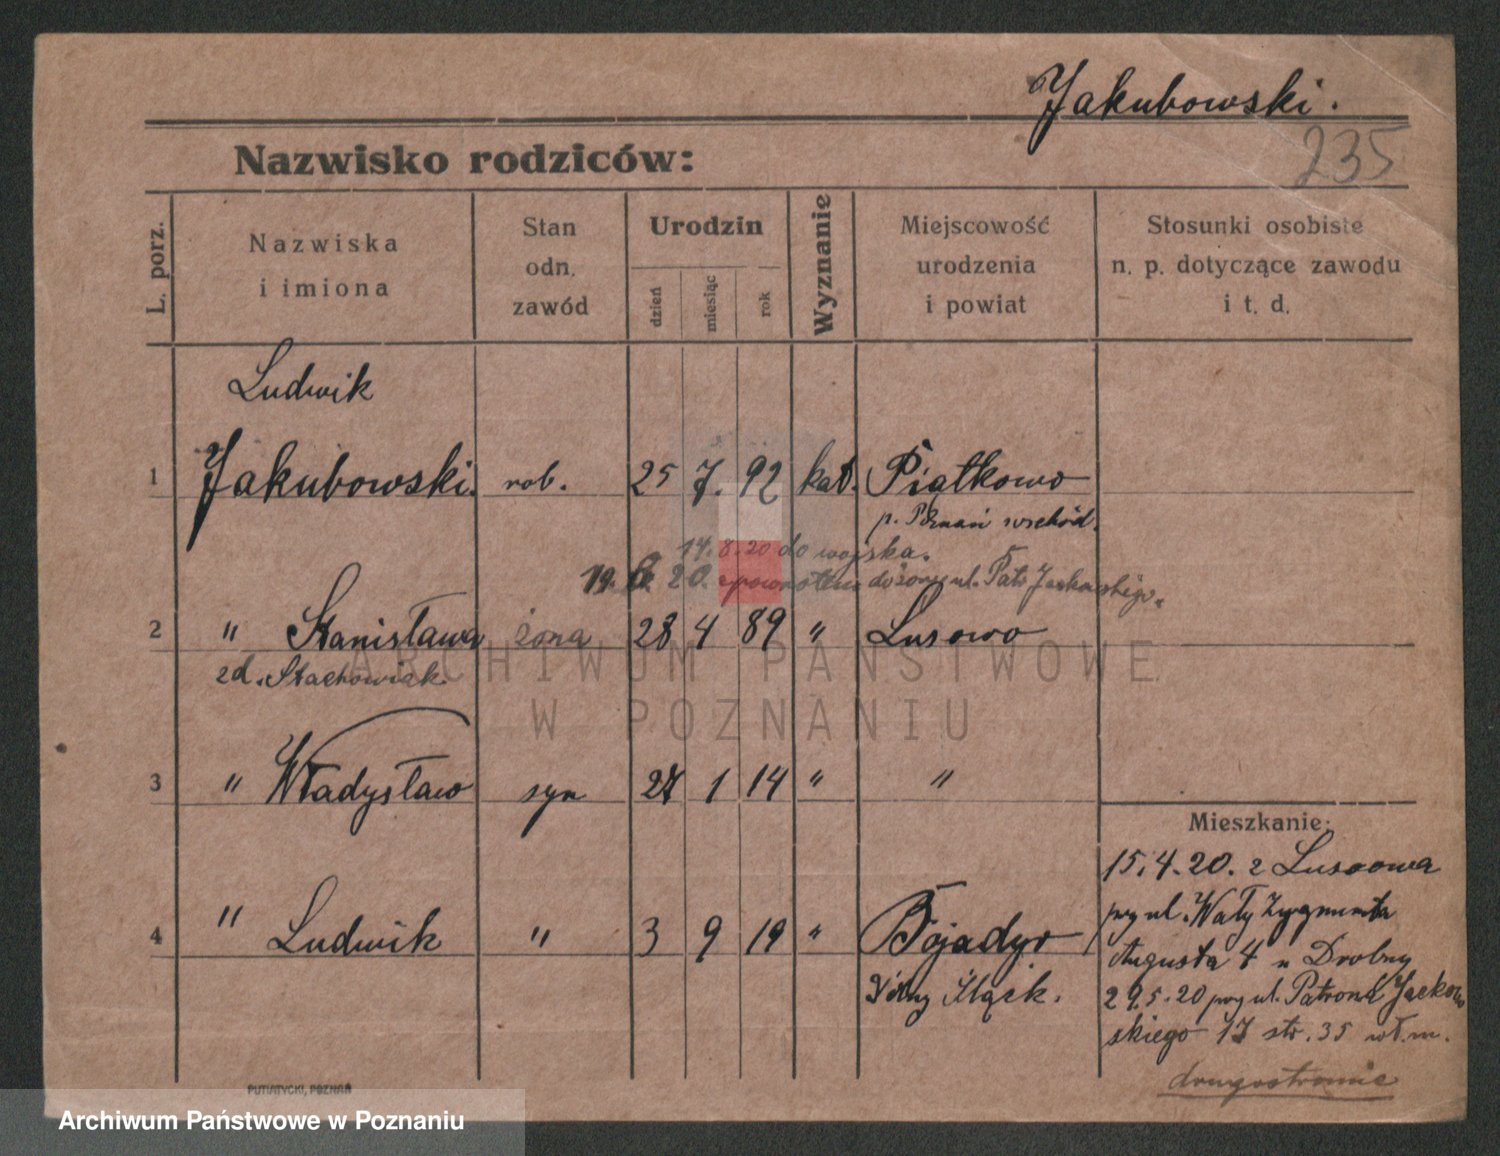 Jakubowski.
235
Nazwisko rodziców:
L. porz.
Nazwiska
i imiona
Stan
odn.
zawód
Urodzin
dzień
miesiąc
rok
Wyznanie
Miejscowość
urodzenia
i powiat
Stosunki osobiste
n. p. dotyczące zawodu
i t. d.
Ludwik
1 Jakubowski. rob. 25 7. 92 kat. Piątkowo
p. Poznań wschód.
14. 8. 20 do wojska.
19. 20. z powrotem do żony ul. Patr. Jackowskiego.
2 " Stanisława żona 28 4 89 " Lusowo
zd. Stachowiak.
ARCHIWUM PAŃSTWOWE
W POZNANIU
3 " Władysław syn 27 1 14 " "
Mieszkanie:
15.4.20. z Lusowa
przy ul. Wały Zygmunta
Augusta 4 u Drobny
29.5.20 przy ul. Patrona Jackow
skiego 17 str. 35 wł. m.
drugostronie
4 " Ludwik " 3 9 19 "
Śląsk.
PUTIATYCKI, POZNAŃ
Archiwum Państwowe w Poznaniu